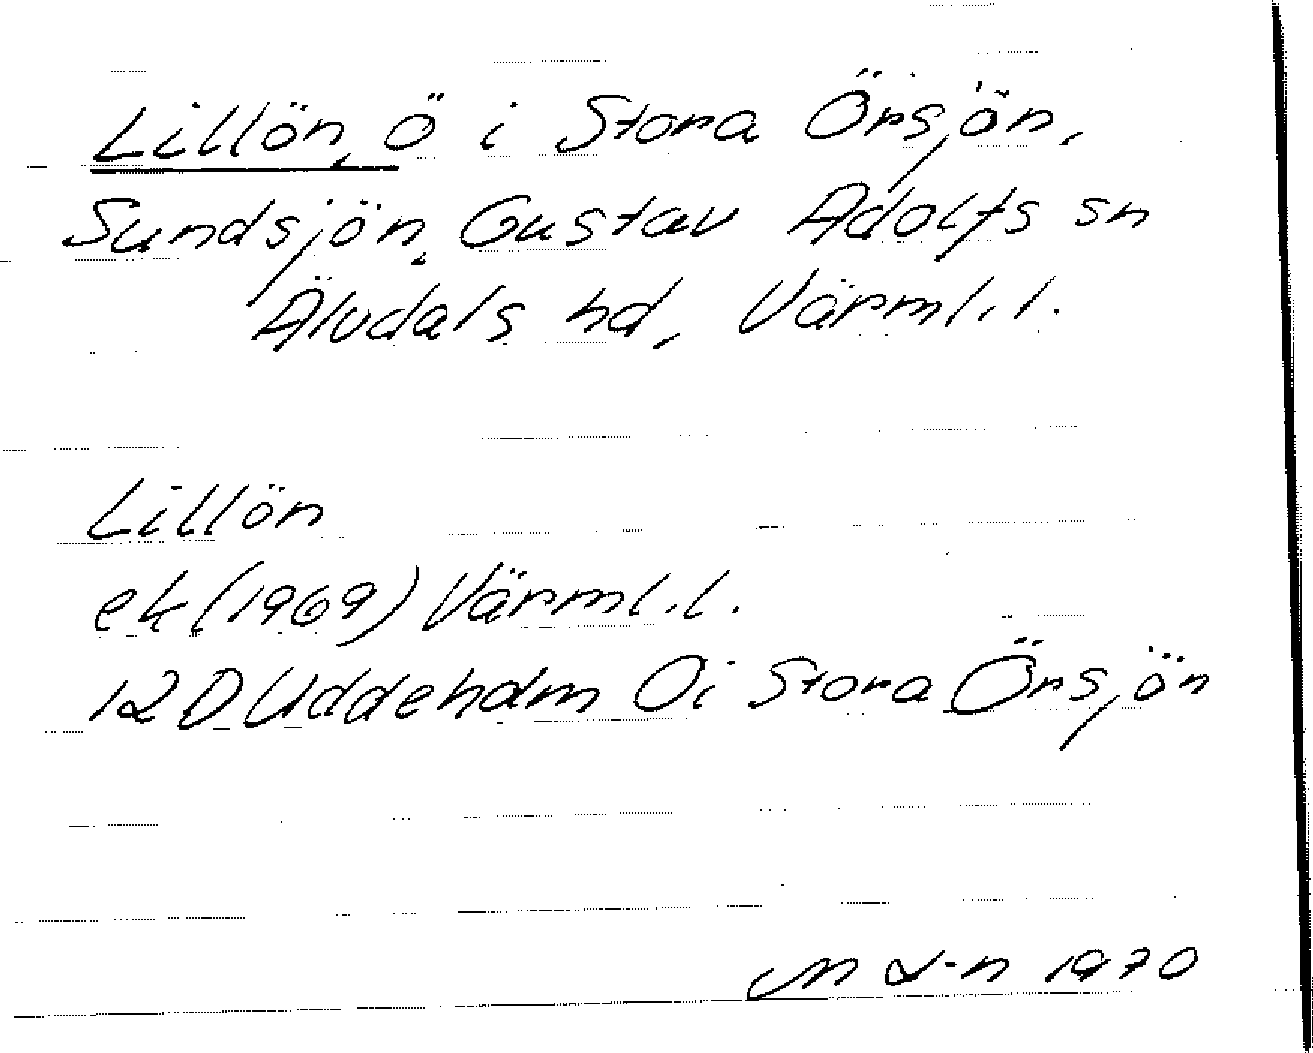 Lillön, ö i Stora Örsjön,
Sundsjön, Gustav Adolfs sn
Älvdals hd, Värml. l.
Lillön
ek (1969) Värml. l.
12D Uddeholm Ö i Stora Örsjön
1970